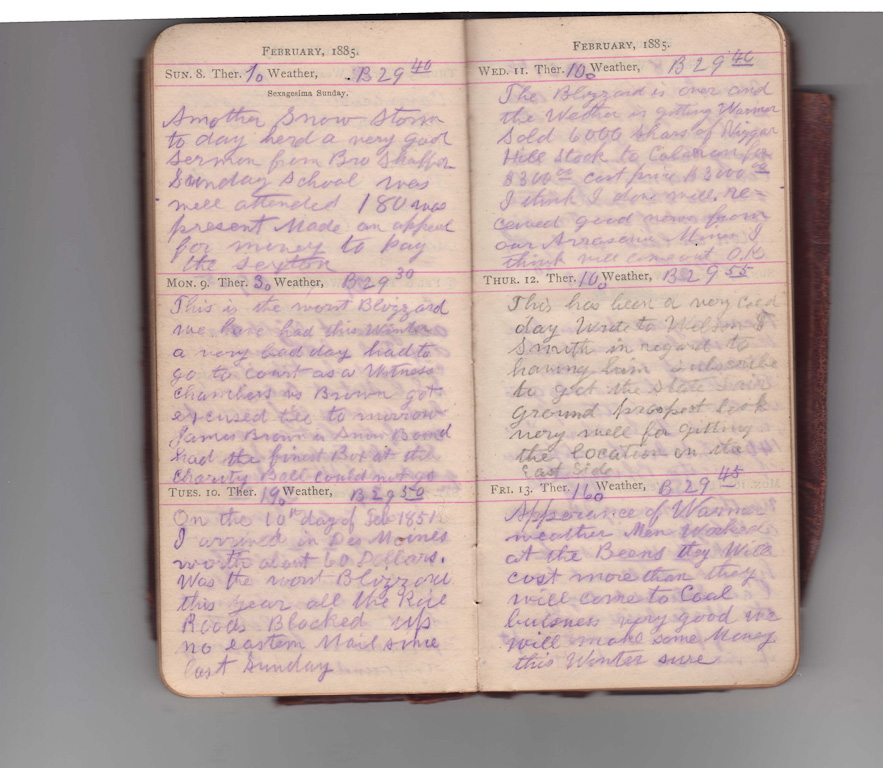 FEBRUARY, 1885.
SUN. 8. Ther. 10 Weather, B 29 40
Sexagesima Sunday.
Another Snow Storm
to day herd a very good
Sermon from Bro Shaffer
Sunday School was
well attended 180 was
present Made an appeal
for money to pay
the sexton
MON. 9. Ther. 30 Weather, B 29 30
This is the worst Blizzard
we have had this Winter
a very bad day had to
go to court as a Witness
Chambers vs Brown got
excused till to morrow
James Brown is Snow Bound
had the finest Box at the
charity Ball could not go
TUES. 10. Ther. 190 Weather, B 29 50
On the 10th day of Feb 1851
I arrived in Des Moines
worth about 60 Dollars.
Was the worst Blizzard
this year all the Rail
Roads Blocked up
no eastern Mail since
last Sunday
FEBRUARY, 1885.
WED. 11. Ther. 100 Weather, B 29 40
The Blizzard is over and
the Wether is gitting Warmer
Sold 6000 Shars of
Hill Stock to for
$300 00 cost price $3000 00
I think I done well. re=
ceived good news from
our Mines I
think will come out O.K
THUR. 12. Ther. 100 Weather, B 29 55
This has been a very cold
day Wrote to T
Smith in regard to
having him subscribe
to get the State Fair
ground prospect look
very well for gitting
the location on the
East Side
FRI. 13. Ther. 160 Weather, B 29 45
Apperance of Warmer
weather Men Worked
at the Beens they Will
cost more than they
will come to Coal
buisness very good we
will make some Money
this Winter sure